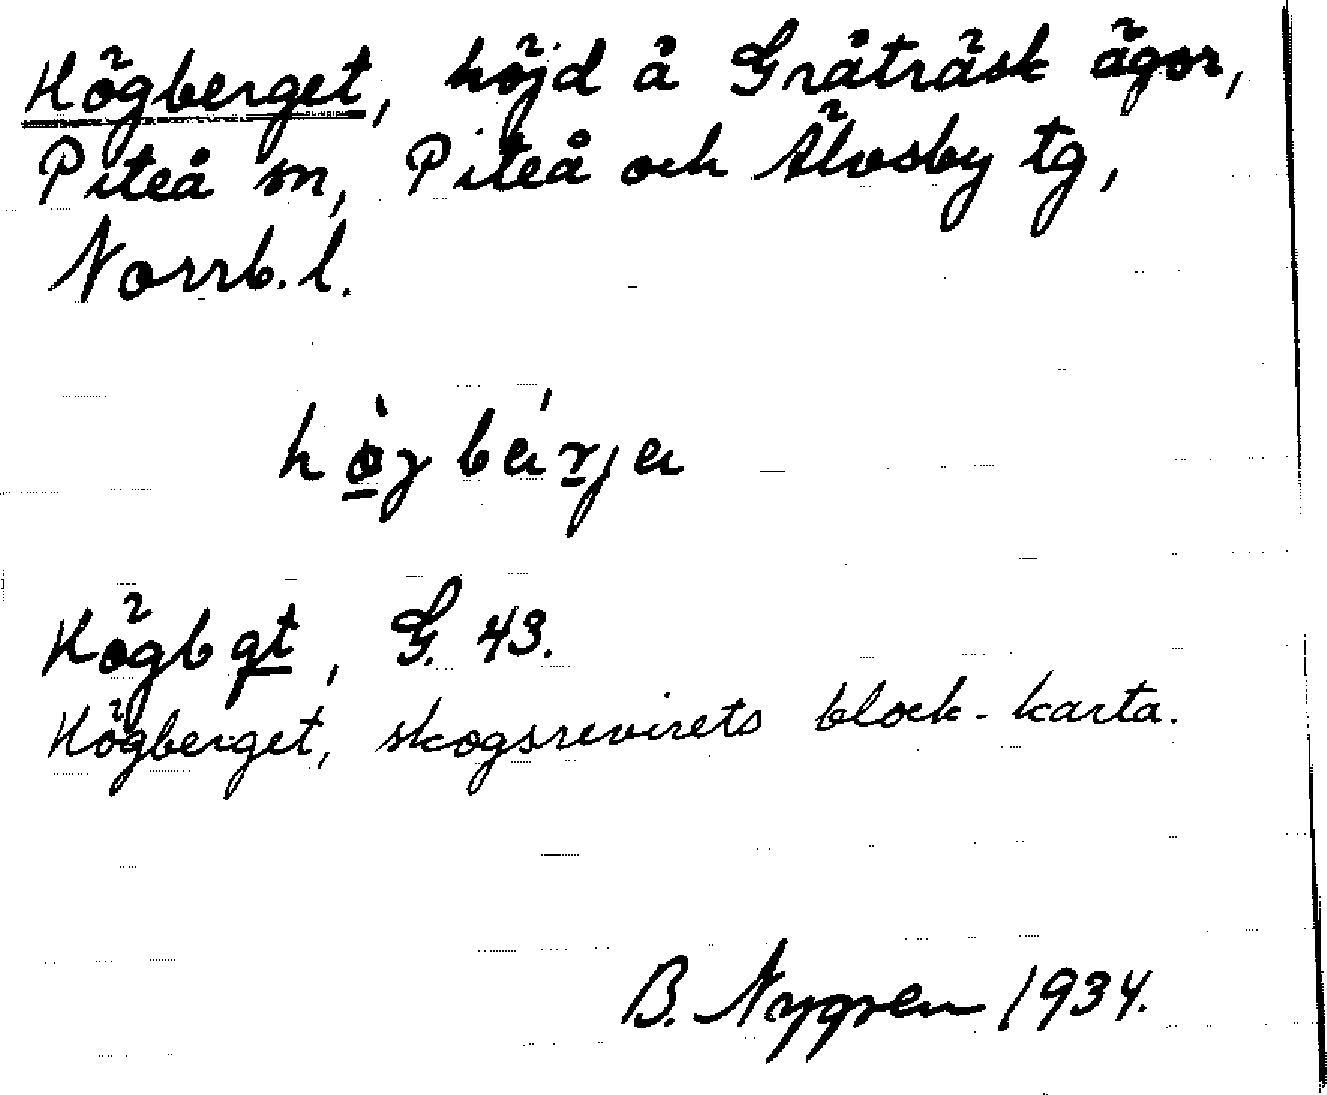 Högberget, höjd å Gråträsk ägor,
Piteå sn, Piteå och Älvsby tg,
Norrb. l.
hö̀gbá̈rja
Högbgt, G. 43.
Högberget, skogsrevirets block-karta.
B. Nygren 1934.